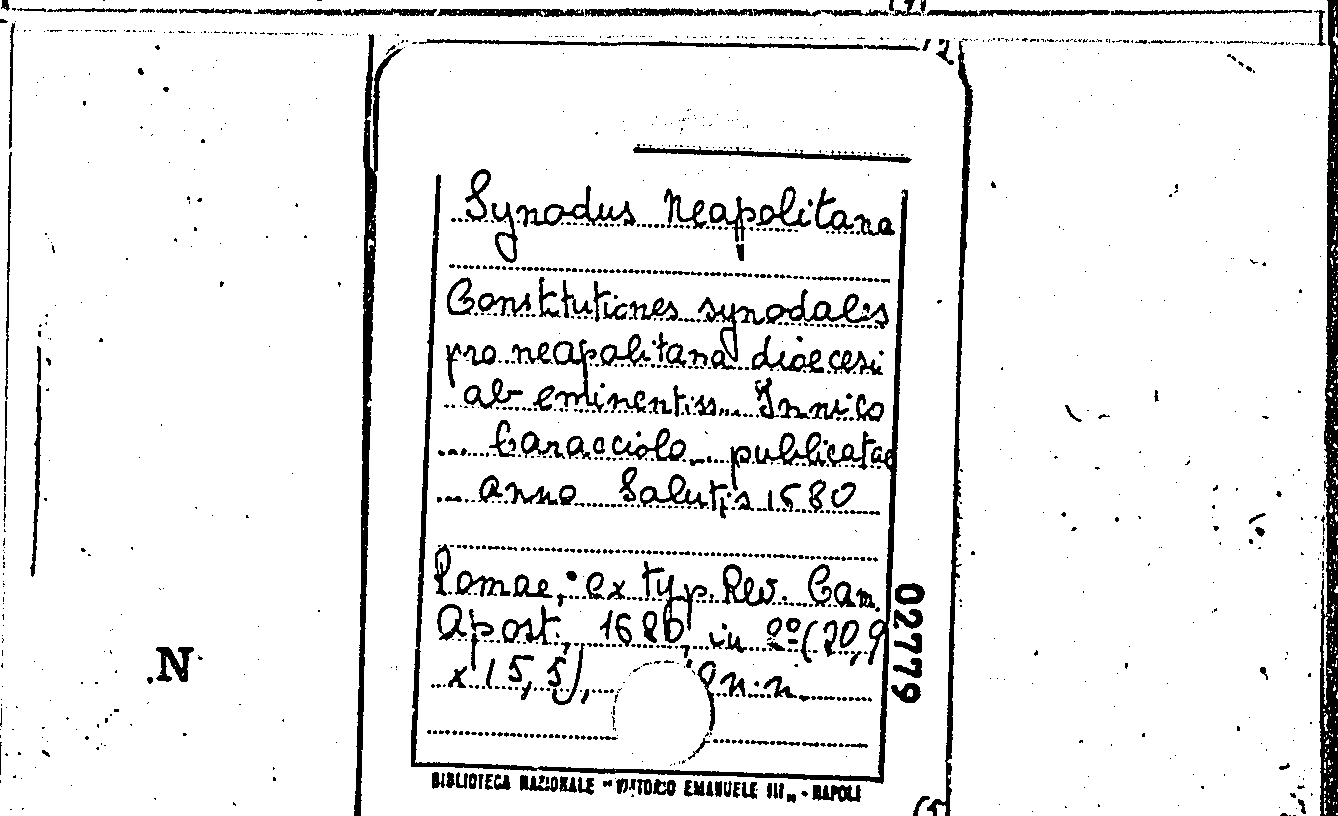 Synodus Neapolitana
Constitutiones synodales
pro neapolitana dioecesi
ab eminentiss... Innico
... Caracciolo... publicatae
... anno Salutis 1680
Romae, ex typ. Rev. Cam.
Apost., 1680, in 8º (20,9
x 15,5), n.n.
02779
.N
BIBLIOTECA NAZIONALE "VITTORIO EMANUELE III" - NAPOLI